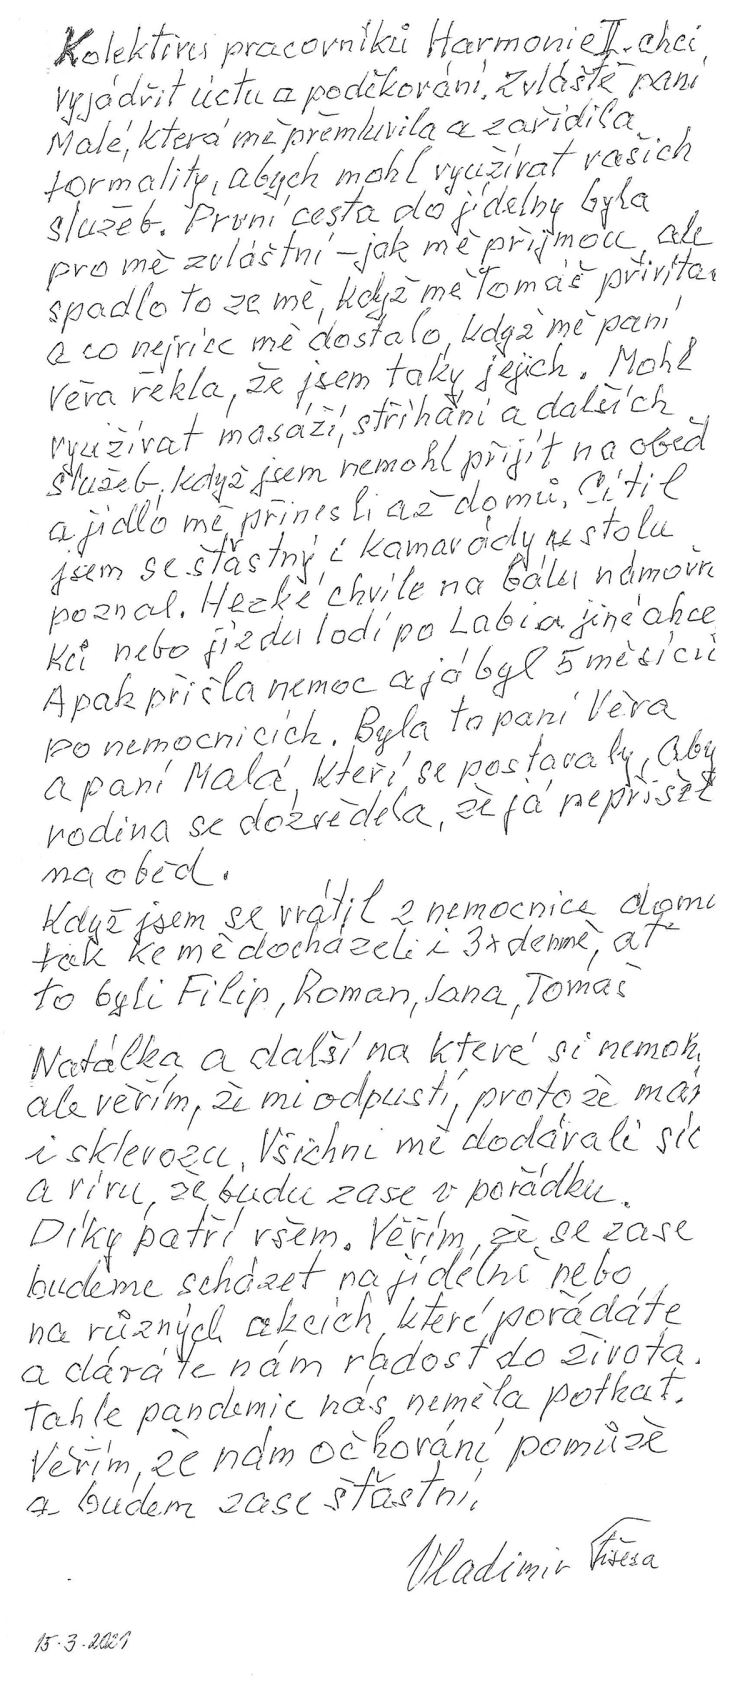 Kolektivu pracovníků Harmonie II. chci
vyjádřit úctu a poděkování. Zvláště paní
Malé, která mě přemluvila a zařídila
formality, abych mohl využívat vašich
služeb. První cesta do jídelny byla
pro mě zvláštní – jak mě přijmou, ale
spadlo to ze mě, když mě Tomáš přivíta
a co nejvíce mě dostalo, když mě paní
Věra řekla, že jsem taky jejich. Mohl
využívat masáží, stříhání a dalších
služeb, když jsem nemohl přijít na oběd
a jídlo mě přinesli až domů. Cítil
jsem se šťastný i kamarády u stolu
poznal. Hezké chvíle na bálu námořn
ků nebo jízdu lodí po Labi a jiné akce
A pak přišla nemoc a já byl 5 měsíců
po nemocnicích. Byla to paní Věra
a paní Malá, kteří se postavaly, aby
rodina se dozvěděla, že já nepřišel
na oběd.
Když jsem se vrátil z nemocnice domu
tak ke mě docházeli i 3x denně, ať
to byli Filip, Roman, Jana, Tomáš
Natálka a další na které si nemoh
ale věřím, že mi odpustí, protože má
i sklerozu. Všichni mě dodávali síl
a víru, že budu zase v pořádku.
Díky patří všem. Věřím, že se zase
budeme scházet na jídelně nebo
na různých akcích, které pořádáte
a dáváte nám radost do života.
Tahle pandemie nás neměla potkat.
Věřím, že nám očkování pomůže
a budem zase šťastní.
Vladimír
15.3.2021